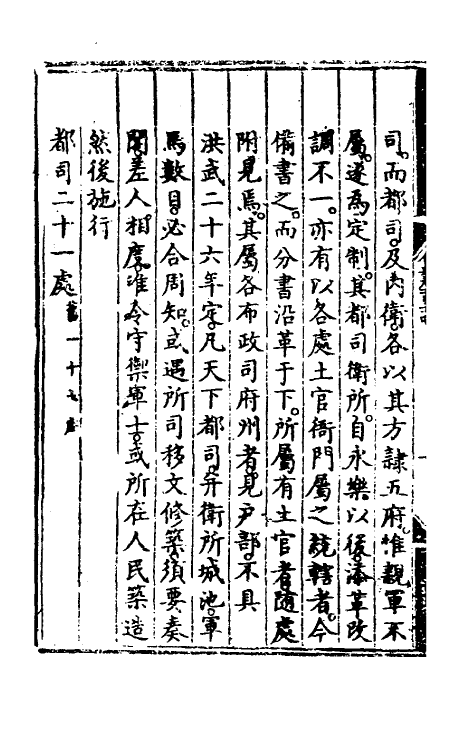 司。而都司。及內衛。各以其方隷五府。惟親軍不
屬。遂為定制。其都司衛所。自永樂以後。添革改
調不一。亦有以各處土官衙門屬之統轄者。今
備書之。而分書沿革于下。所屬有土官者。隨處
附見焉。其屬各布政司府州者。見戶部。不具
洪武二十六年定。凡天下都司。并衛所城池。軍
馬數目。必合周知。或遇所司移文修築。須要奏
聞差人相度。准令守禦軍士。或所在人民築造
然後施行
都司二十一處舊一十七處